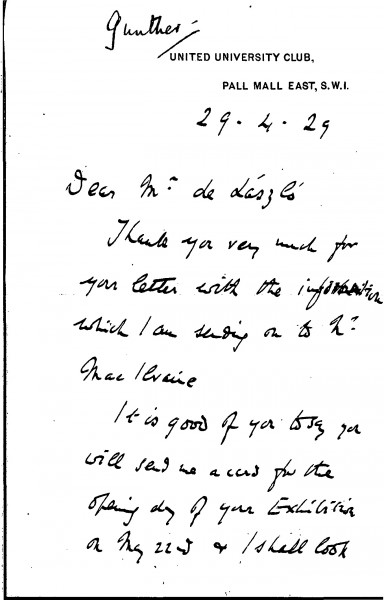 Gunther
UNITED UNIVERSITY CLUB,
PALL MALL EAST, S.W.1.
29.4.29
Dear Mr de László
Thank you very much for
your letter with the information
which I am sending on to Mr
Mac Ilraine
It is good of you to say you
will send me a card for the
opening day of your Exhibition
on May 22nd & I shall look